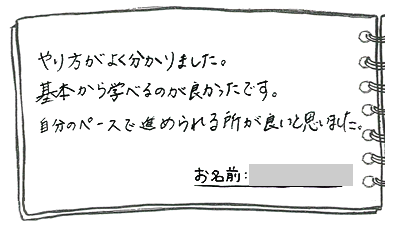 やり方がよく分かりました。
基本から学べるのが良かったです。
自分のペースで進められる所が良いと思いました。
お名前: